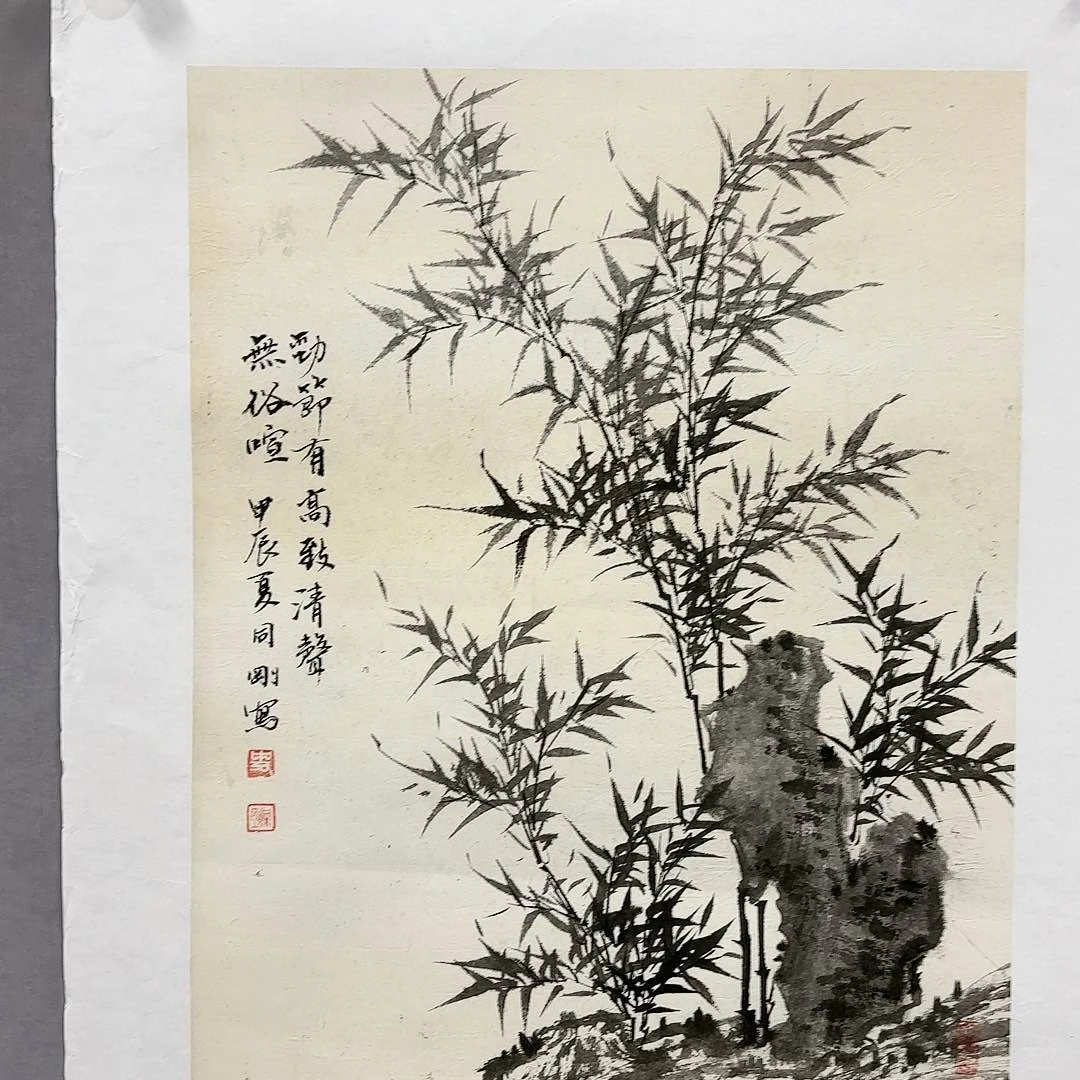 勁節有高致清聲
無俗喧 甲辰夏同剛寫